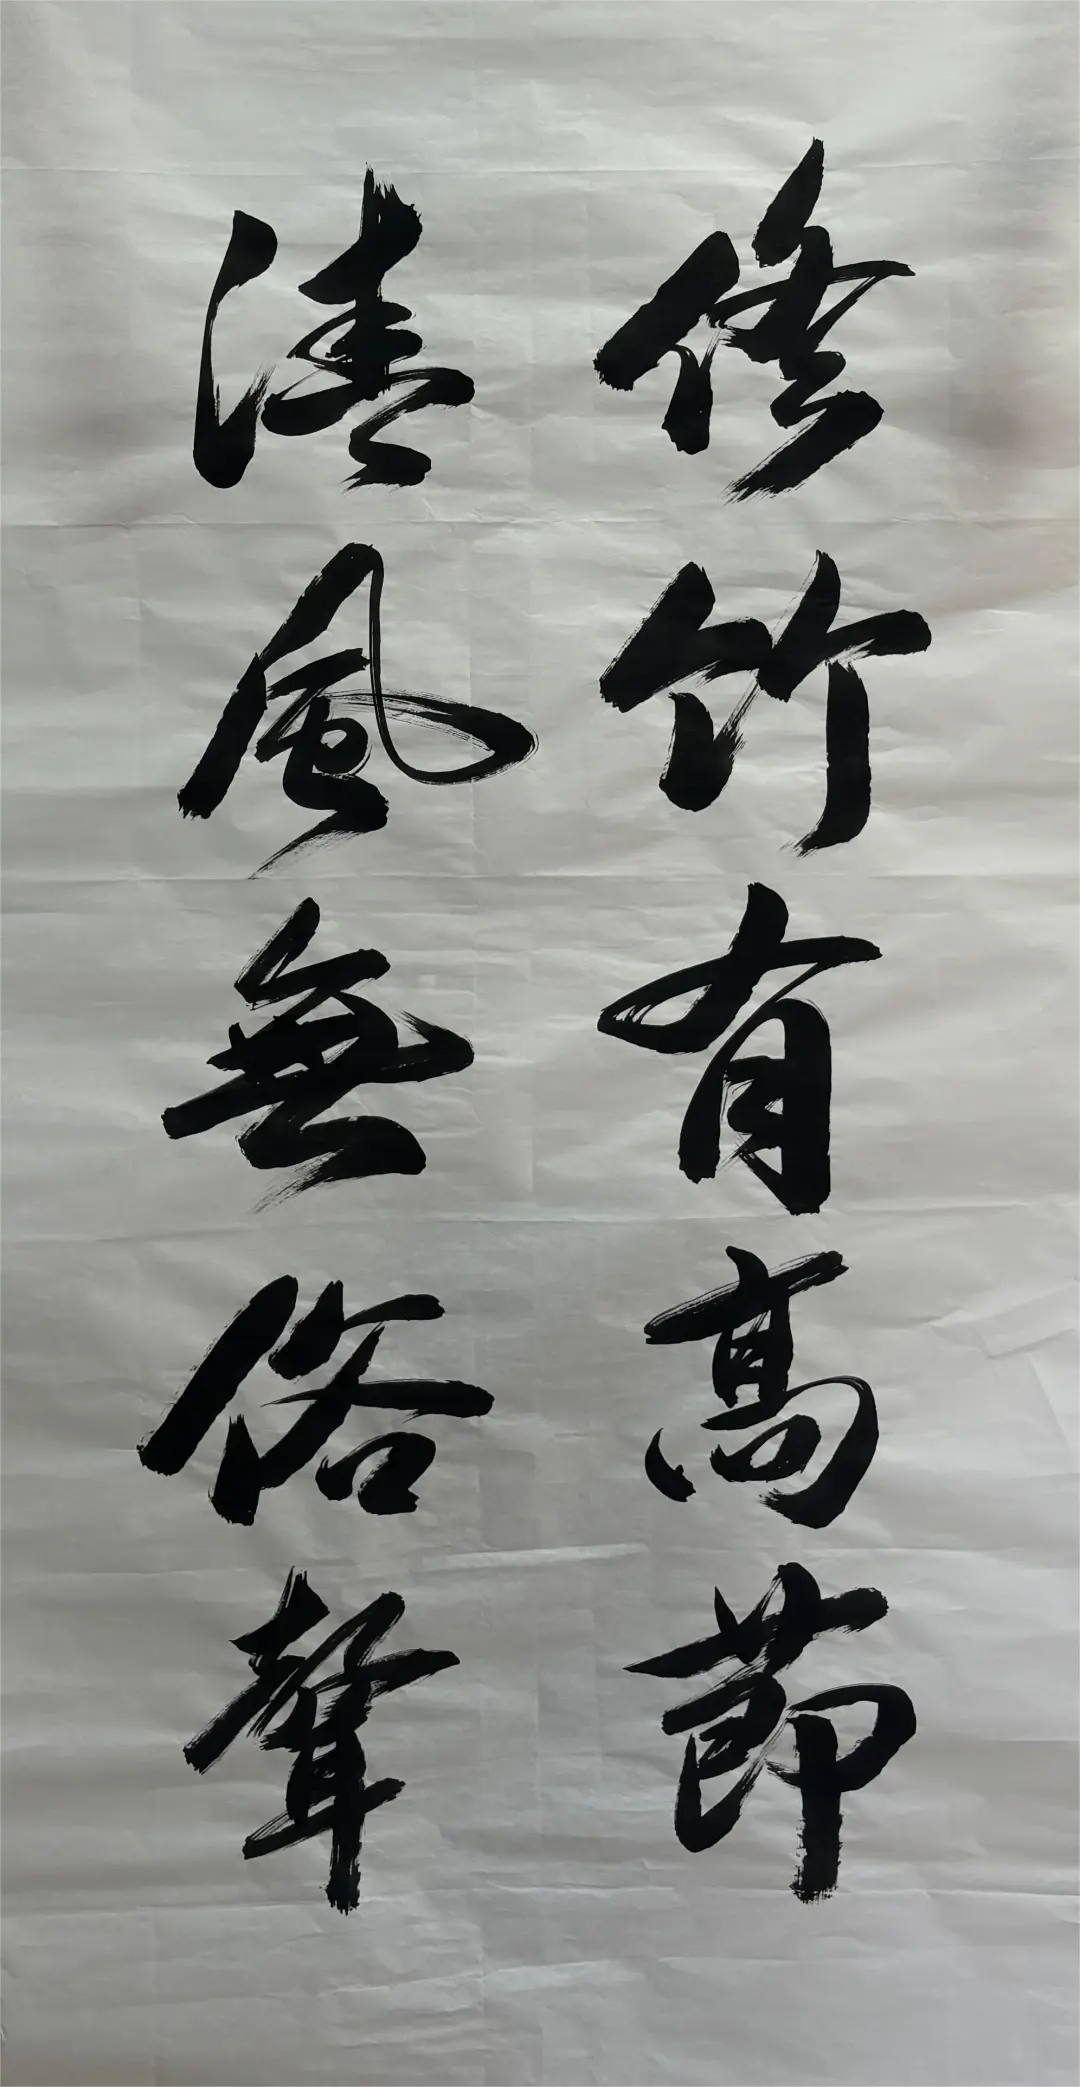 修竹有高節
清風無俗聲